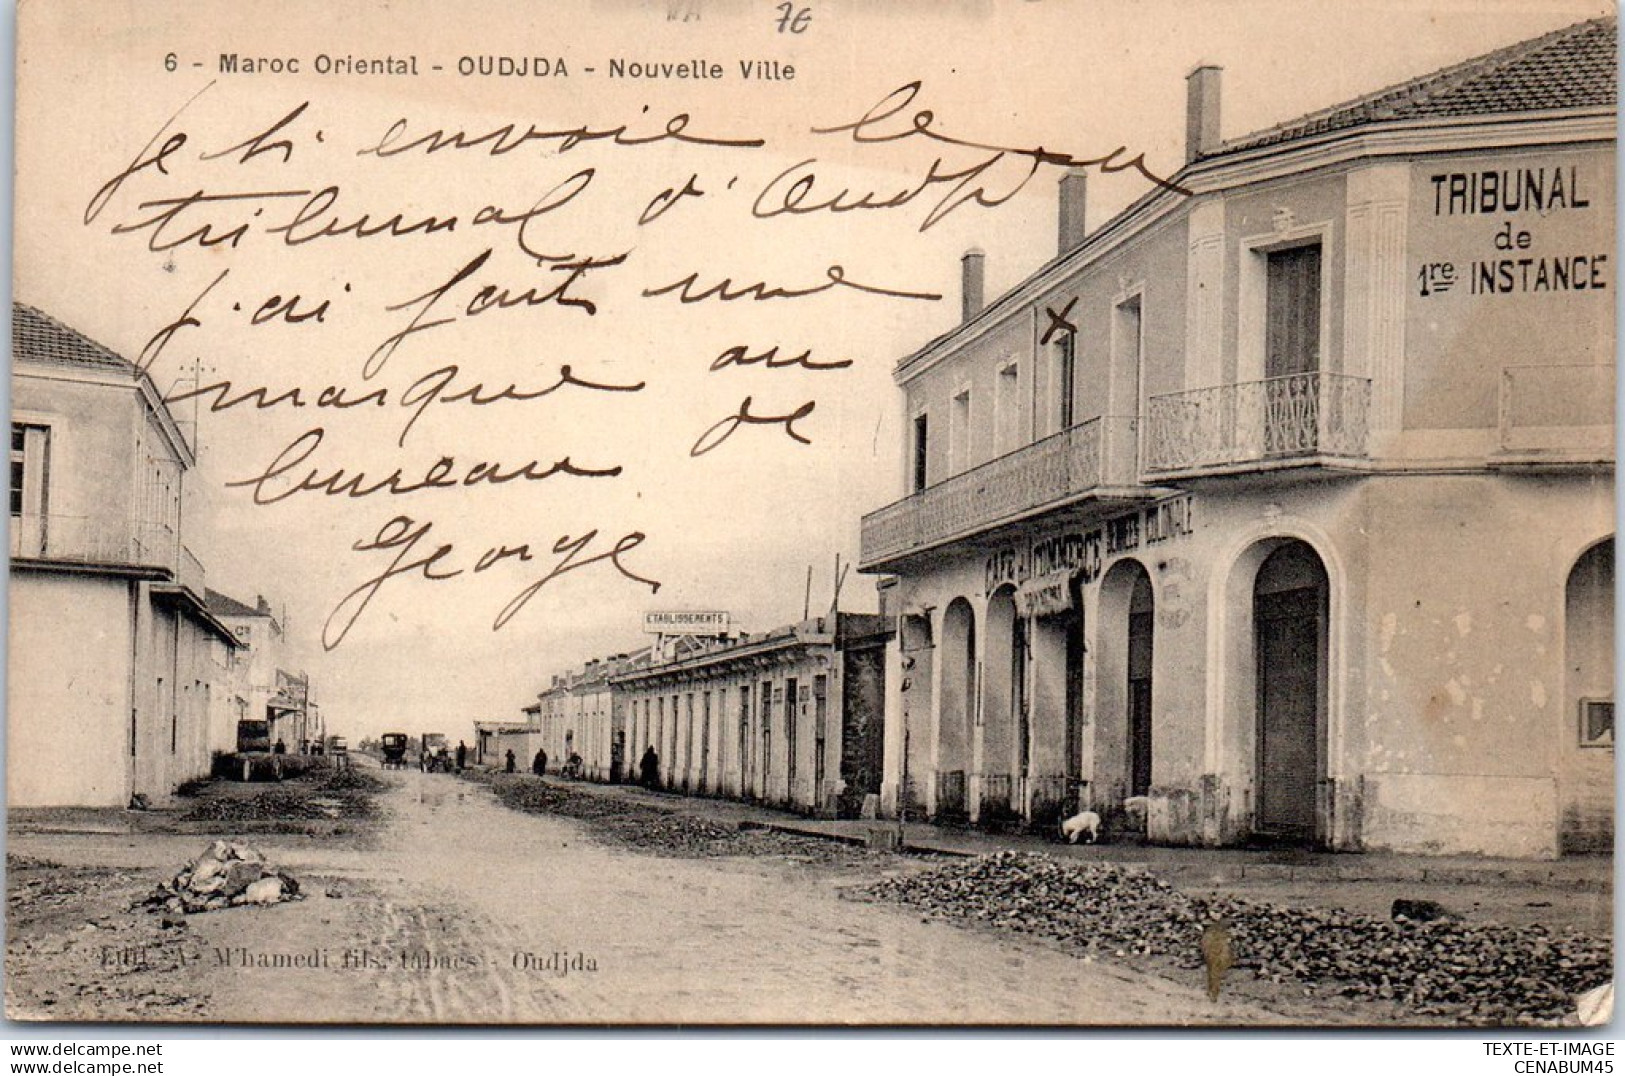 7€
6 - Maroc Oriental - OUDJDA - Nouvelle Ville
je ti envoie le
tribunal d'Oudjda
j'ai fait une
marque au
bureau de
George
TRIBUNAL
de
1re. INSTANCE
CAFÉ du COMMERCE
DENRÉES COLONIALE
ETABLISSEMENTS
Cie
Edit. A. M'hamedi fils, tabacs - Oudjda
delcampe.net
cenabum
TEXTE-ET-IMAGE
CENABUM45